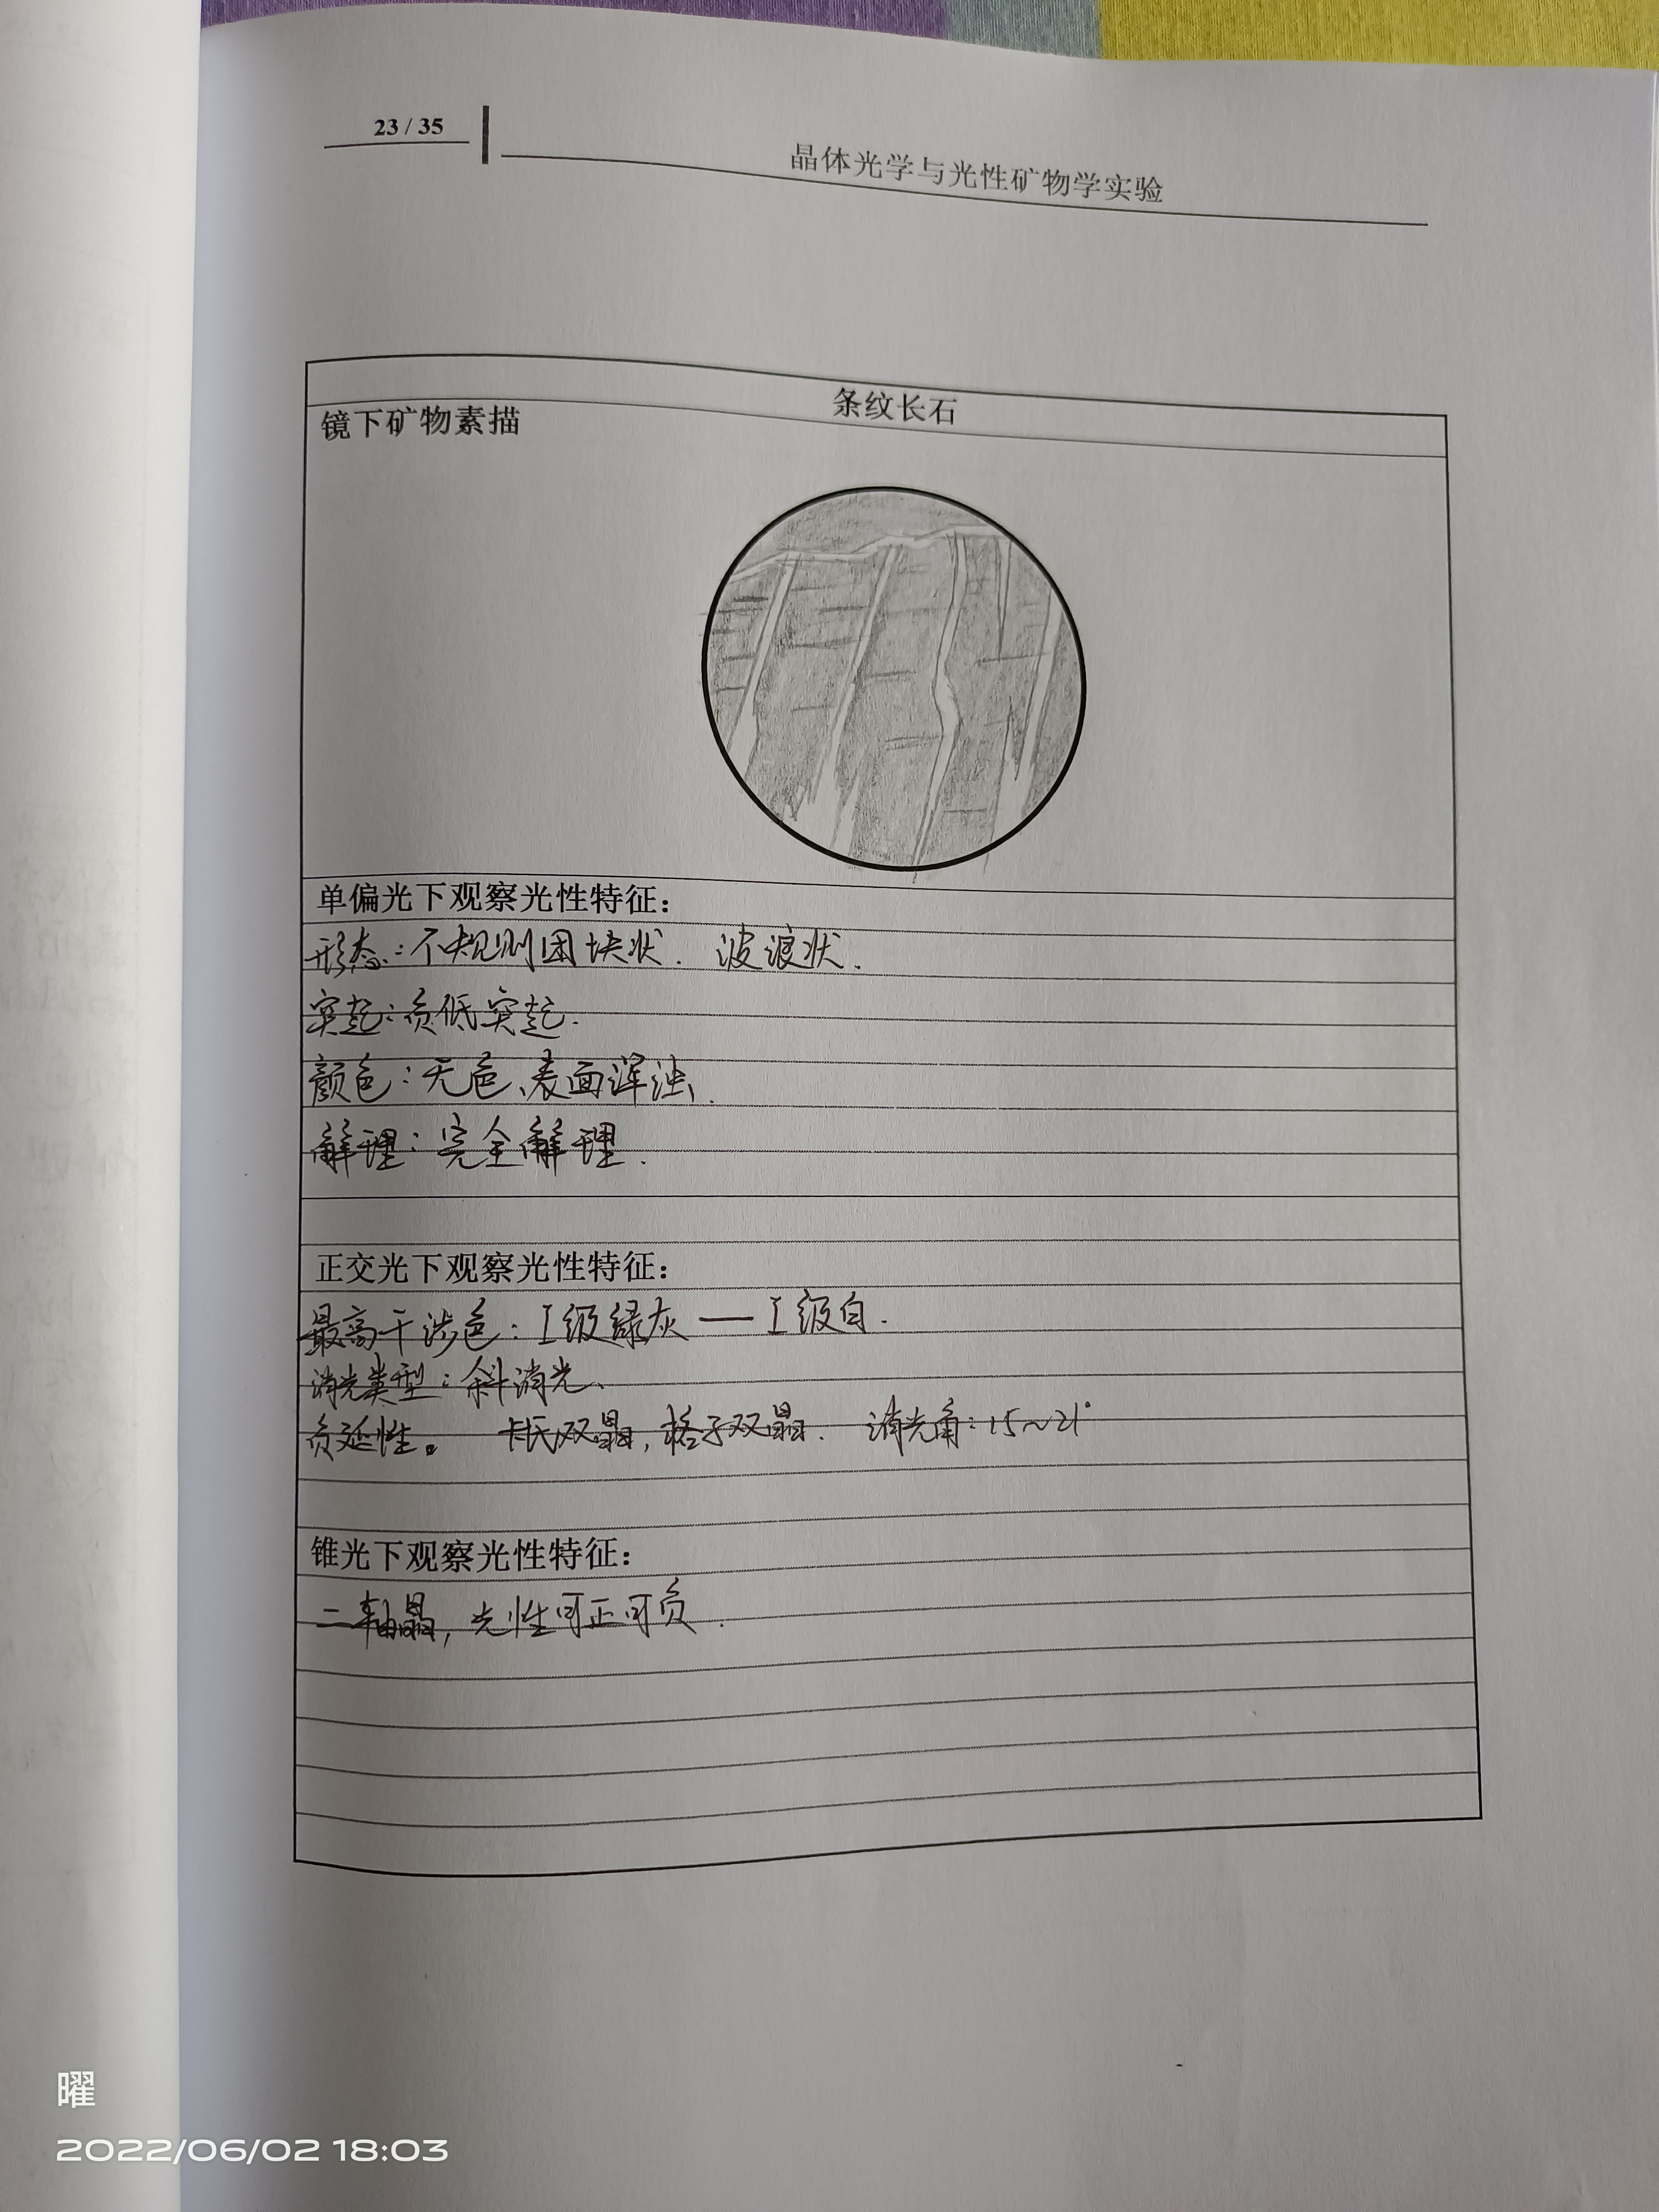 23 / 35
晶体光学与光性矿物学实验
条纹长石
镜下矿物素描
单偏光下观察光性特征：
形态：不规则团块状. 波浪状.
突起：负低突起.
颜色：无色、表面浑浊.
解理：完全解理.
正交光下观察光性特征：
最高干涉色：I级绿灰——I级白.
消光类型：斜消光、
负延性。 卡氏双晶，格子双晶. 消光角：15~21°
锥光下观察光性特征：
二轴晶，光性可正可负.
曜
2022/06/02 18:03